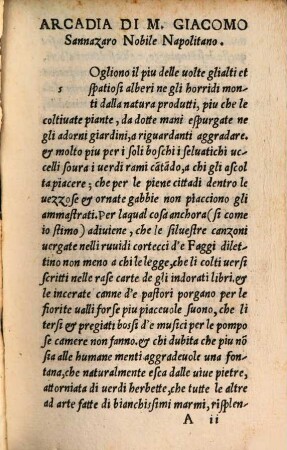 ARCADIA DI M. GIACOMO
Sannazaro Nobile Napolitano.
s
Ogliono il piu delle uolte glialti et
spatiosi alberi ne gli horridi mon-
ti dalla natura produtti, piu che le
coltiuate piante, da dotte mani espurgate ne
gli adorni giardini, a riguardanti aggradare.
& molto piu per i soli boschi i seluatichi uc-
celli soura i uerdi rami cātādo, a chi gli ascol
ta piacere; che per le piene cittadi dentro le
uezzose & ornate gabbie non piacciono gli
ammastrati. Per laqual cosa anchora (si come
io stimo) adiuiene, che le siluestre canzoni
uergate nelli ruuidi cortecci d'e Faggi dilet-
tino non meno a chi le legge, che li colti uersi
scritti nelle rase carte de gli indorati libri. &
le incerate canne d'e pastori porgano per le
fiorite ualli forse piu piaceuole suono, che li
tersi & pregiati bossi d'e musici per le pompo
se camere non fanno. & chi dubita che piu nō
sia alle humane menti aggradeuole una fon-
tana, che naturalmente esca dalle uiue pietre,
attorniata di uerdi herbette, che tutte le altre
ad arte fatte di bianchissimi marmi, risplen-
A ii